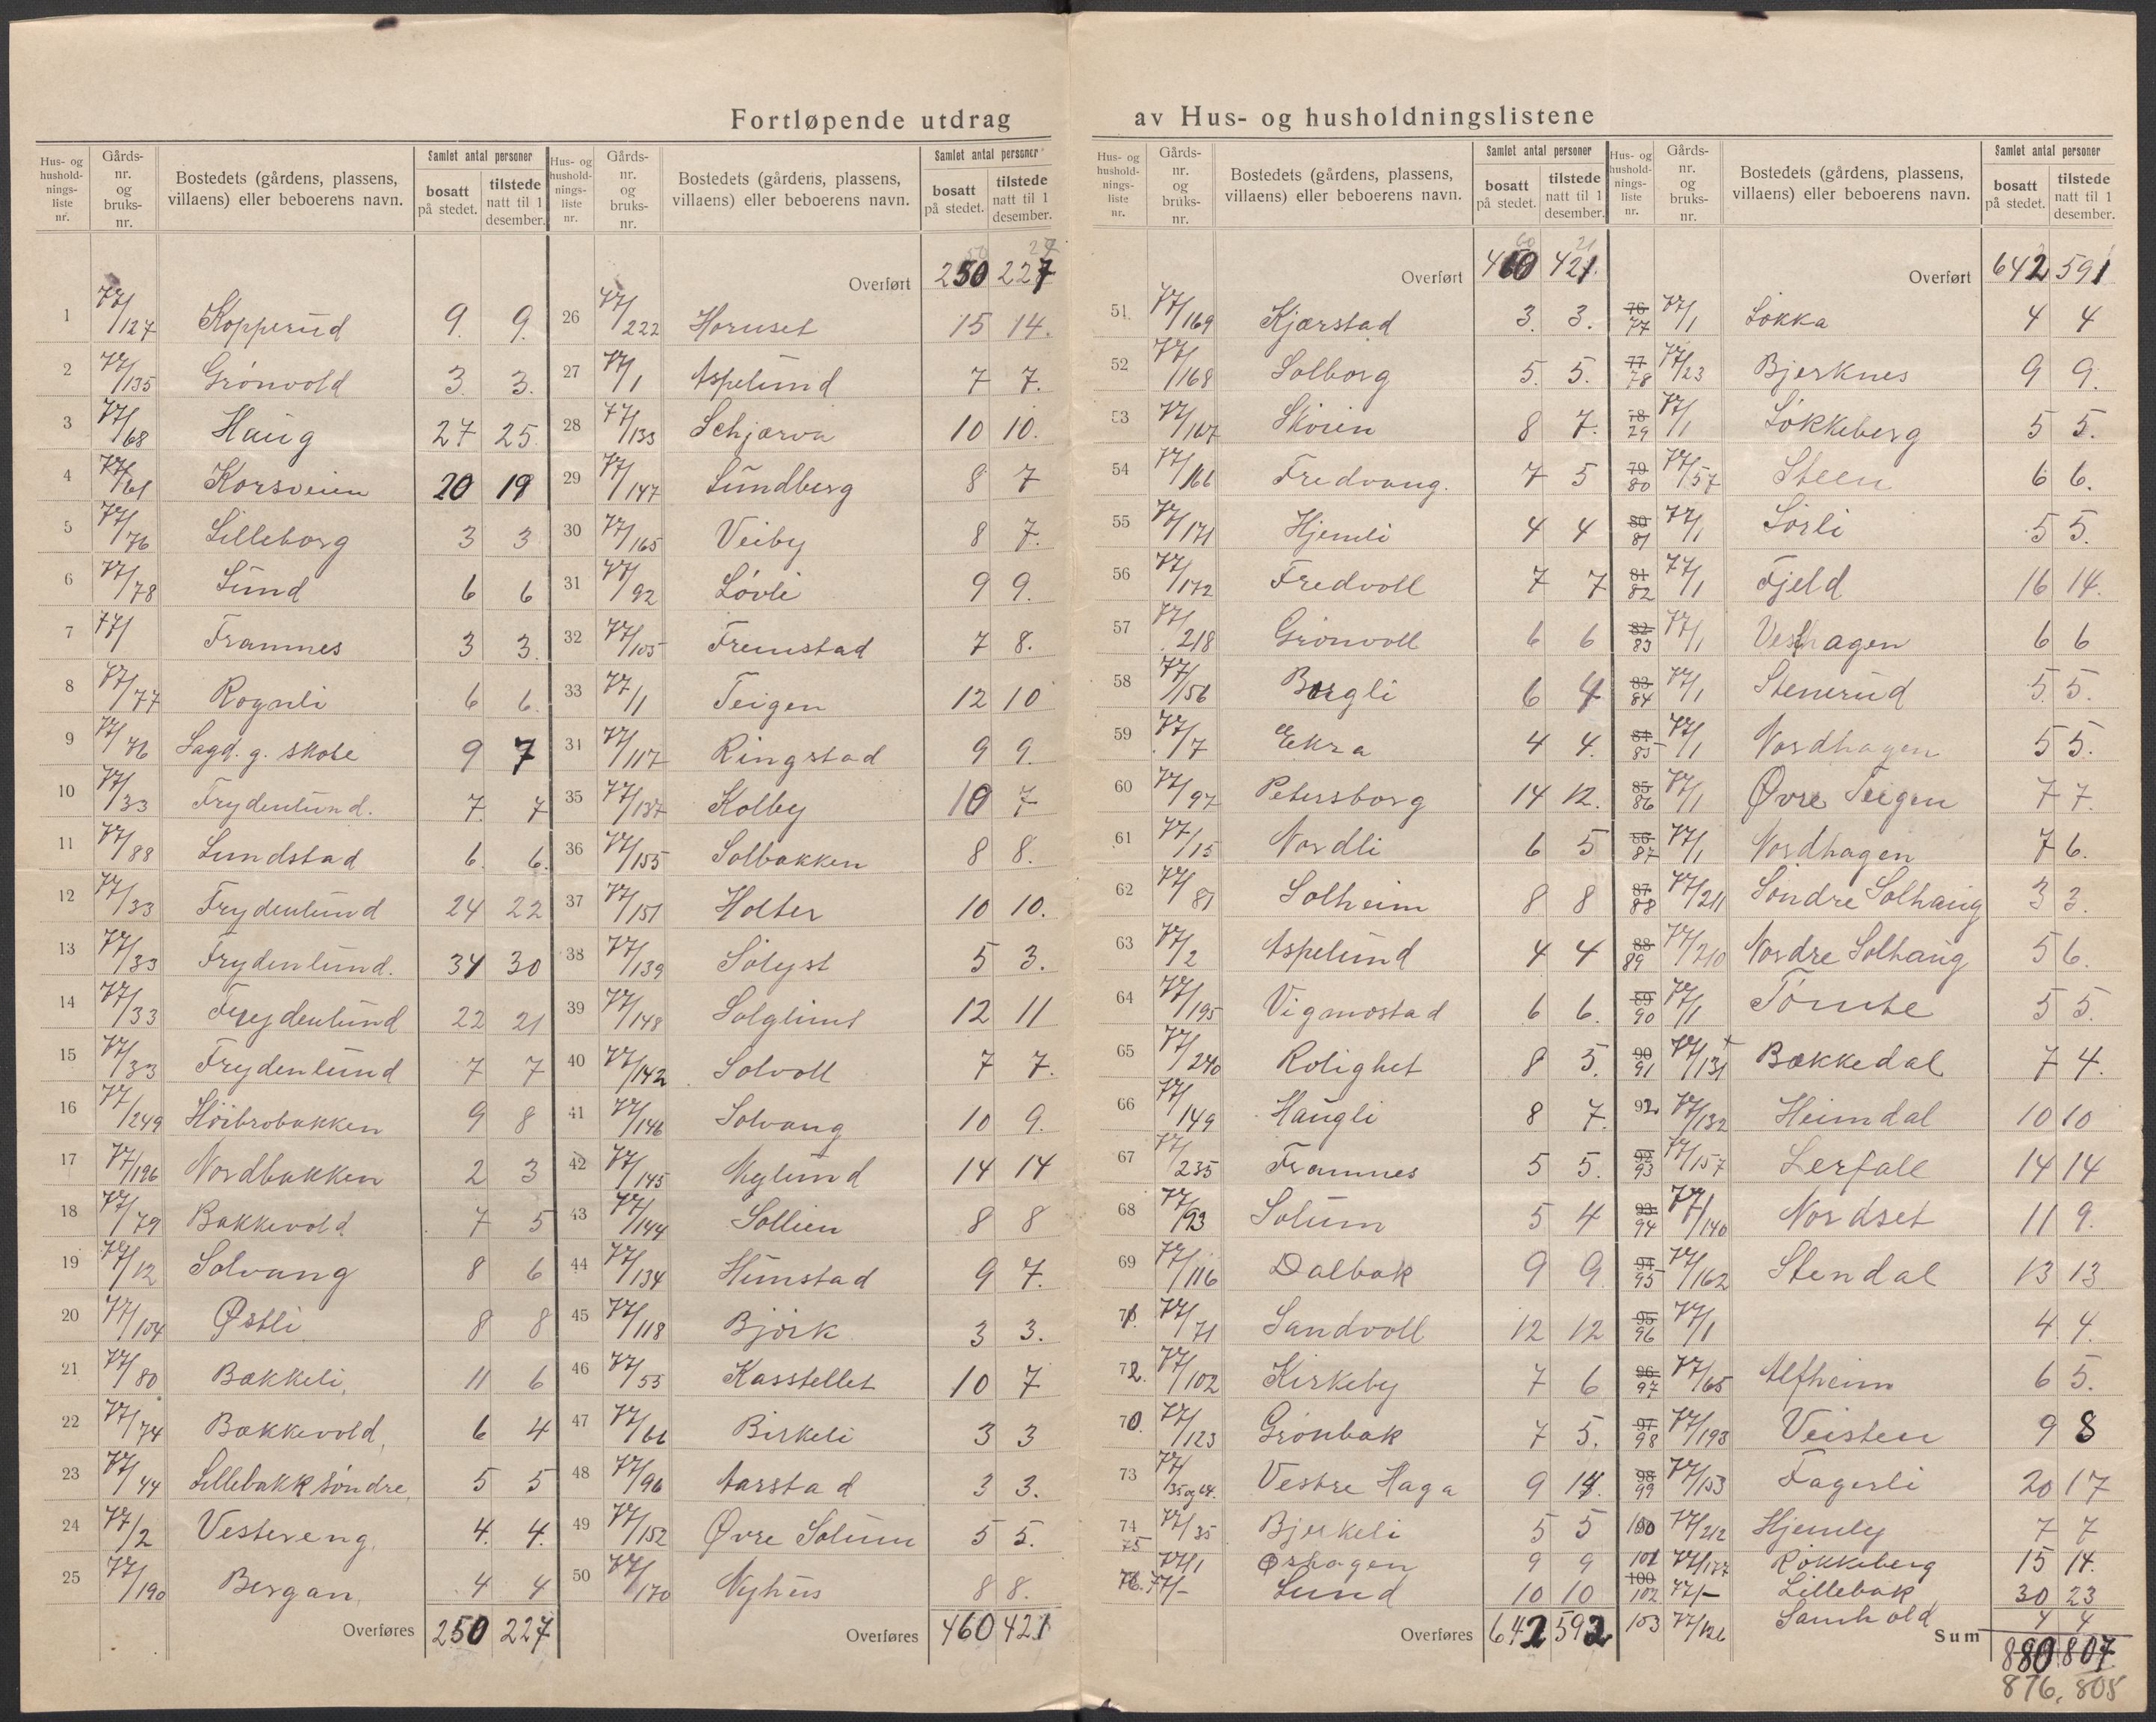 Fortløpende utdrag av Hus- og husholdningslistene
Hus- og husholdnings-liste nr. | Gårds-nr. og bruks-nr. | Bostedets (gårdens, plassens, villaens) eller beboerens navn. | Samlet antal personer bosatt på stedet. | tilstede natt til 1 desember.
1 77/127 Kopperud 9. 9.
2 77/135 Grönvold 3. 3.
3 77/68 Haug 27 25.
4 77/61 Korsveien 20 19
5 77/76 Lilleborg 3 3
6 77/78 Lund 6 6
7 77/ Framnes 3 3.
8 77/77 Rognli 6 6.
9 77/76 Lagd. g. skole 9 7
10 77/33 Frydenlund. 7. 7
11 77/88 Lundstad 6. 6.
12 77/33 Frydenlund 24 22
13 77/33 Frydenlund. 34 30
14 77/33 Frydenlund 22 21
15 77/33 Frydenlund 7 7
16 77/249 Höibrobakken 9 8
17 77/196 Nordbakken 2 3
18 77/79 Bakkevold 7 5
19 77/12 Solvang 8 6
20 77/104 Østli 8 8
21 77/80 Bakkeli, 11 6
22 77/74 Bakkevold, 6 4
23 77/44 Lillebakk söndre, 5 5
24 77/2 Vestereng. 4. 4.
25 77/190 Bergan. 4 4
Overføres 250 227
Hus- og husholdnings-liste nr. | Gårds-nr. og bruks-nr. | Bostedets (gårdens, plassens, villaens) eller beboerens navn. | Samlet antal personer bosatt på stedet. | tilstede natt til 1 desember.
Overført 250 227
26 77/222 Hornset 15 14.
27 77/1 Aspelund 7 7.
28 77/133 Schjærva 10 10.
29 77/147 Lundberg 8 7
30 77/165 Veiby 8 7.
31 77/92 Lövli 9 9.
32 77/105 Fremstad 7 8.
33 77/1 Teigen 12 10
34 77/117 Ringstad 9 9.
35 77/137 Kolby 10 7
36 77/155 Solbakken 8 8.
37 77/151 Holter 10 10.
38 77/139 Sölyst 5 3.
39 77/148 Solglimt 12 11
40 77/142 Solvoll 7 7.
41 77/146 Solvang 10 9.
42 77/145 Nylund 14 14
43 77/144 Sollien 8 8
44 77/134 Humstad 9 7.
45 77/118 Björk 3 3.
46 77/55 Kasstellet 10 7
47 77/66 Birkeli 3 3
48 77/96 Aarstad 3 3.
49 77/152 Øvre Solum 5 5.
50 77/170 Nyhus 8 8.
Overføres 460 421
Hus- og husholdnings-liste nr. | Gårds-nr. og bruks-nr. | Bostedets (gårdens, plassens, villaens) eller beboerens navn. | Samlet antal personer bosatt på stedet. | tilstede natt til 1 desember.
Overført 460 421.
51 77/169 Kjærstad 3. 3.
52 77/168 Solborg 5. 5.
53 77/167 Skoien 8 7.
54 77/166 Fredvang. 7 5
55 77/171 Hjemli 4 4
56 77/172 Fredvoll 7 7
57 77/218 Grönvoll 6 6
58 77/156 Bergli 6 4
59 77/7 Ekra 4 4.
60 77/97 Petersborg 14 12.
61 77/15 Nordli 6 5
62 77/81 Solheim 8 8
63 77/2 Aspelund 4 4
64 77/195 Vigmostad 6 6.
65 77/240 Rolighet 8 5.
66 77/149 Haugli 8 7.
67 77/235 Framnes 5 5.
68 77/93 Solum 5 4
69 77/116 Dalbak 9 9
71. 77/71 Sandvoll 12 12
72. 77/102 Kirkeby 7 6
70. 77/123 Grönbak 7 5.
73 77/35 og 64. Vestre Haga 9 14.
74 77/35 Bjerkeli 5 5
75 77/1 Oshagen 9 9
76. 77/- Lund 10 10
Overføres 642 592
Hus- og husholdnings-liste nr. | Gårds-nr. og bruks-nr. | Bostedets (gårdens, plassens, villaens) eller beboerens navn. | Samlet antal personer bosatt på stedet. | tilstede natt til 1 desember.
Overført 642 591
76 77 77/1 Lökka 4 4
77 78 77/23 Bjerknes 9 9.
78 79 77/1 Lökkeberg 5 5.
79 80 77/57 Steen 6 6.
80 81 77/1 Lörli 5 5.
81 82 77/1 Fjeld 16 14.
82 83 77/1 Vesthagen 6 6
83 84 77/1 Stenerud 5 5.
84 85 77/1 Nordhagen 5 5.
85 86 77/1 Øvre Teigen 7 7.
86 87 77/1 Nordhagen 7 6.
87 88 77/211 Söndre Solhaug 3 3.
88 89 77/210 Nordre Solhaug 5 6.
89 90 77/1 Tömte 5 5.
90 91 77/131 Bakkedal 7 4.
92. 77/132 Heimdal 10 10
92 93 77/157 Lerfall 14 14
93 94 77/140 Nordset 11 9.
94 95 77/162 Stendal 13 13
95 96 77/1 4 4.
96 97 77/65 Alfheim 6 5.
97 98 77/193 Veisten 9 8
98 99 77/153 Fagerli 20 17
100 77/212 Hjemly 7 7
101 77/177 Rökkeberg 15 14.
100 102 77/- Lillebak 30 23
103 77/126 Samhold 4 4
Sum 880 807
876. 805